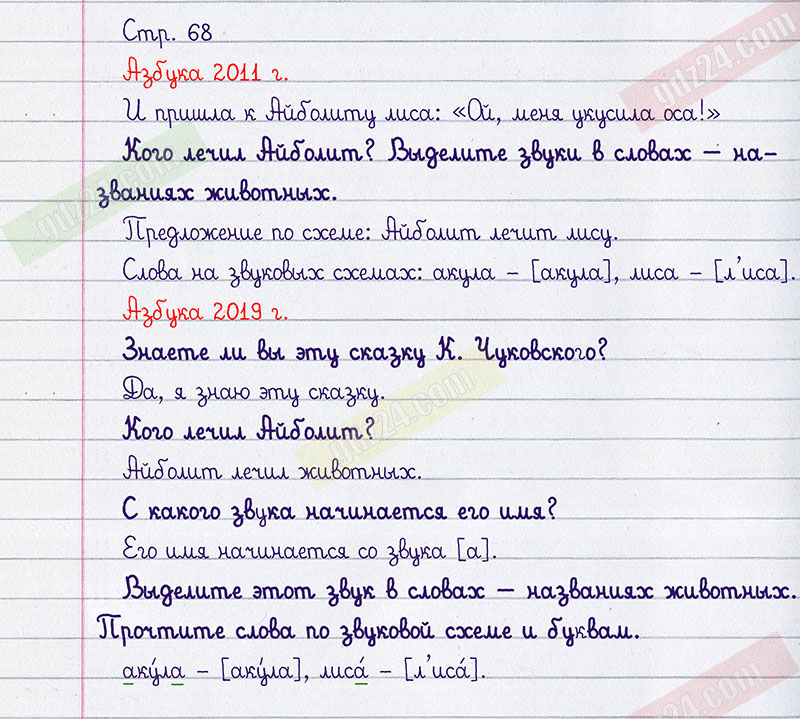 Стр. 68
Азбука 2011 г.
И пришла к Айболиту лиса: «Ой, меня укусила оса!»
Кого лечил Айболит? Выделите звуки в словах – на-
званиях животных.
Предложение по схеме: Айболит лечит лису.
Слова на звуковых схемах: акула – [акула], лиса – [л'иса].
Азбука 2019 г.
Знаете ли вы эту сказку К. Чуковского?
Да, я знаю эту сказку.
Кого лечил Айболит?
Айболит лечил животных.
С какого звука начинается его имя?
Его имя начинается со звука [а].
Выделите этот звук в словах – названиях животных.
Прочтите слова по звуковой схеме и буквам.
аку́ла – [аку́ла], лиса́ – [л'иса́].
gdz24.com
gdz24.com
gdz24.com
gdz24.com